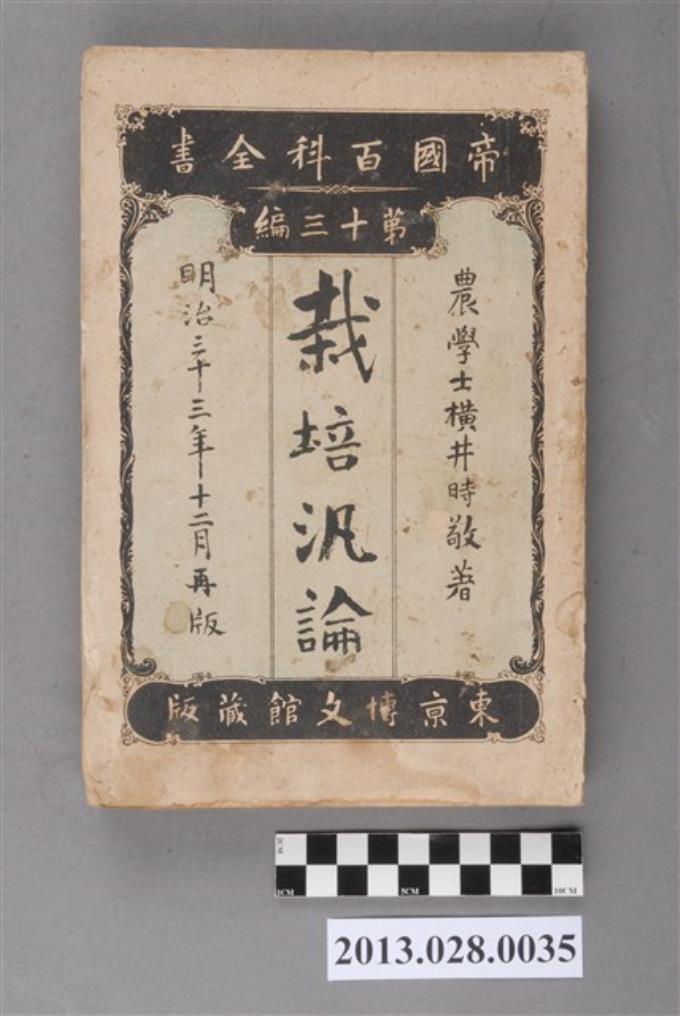 帝國百科全書
第十三編
農學士横井時敬著
栽培汎論
明治三十三年十二月再版
東京博文館蔵版
1CM
5CM
10CM
2013.028.0035